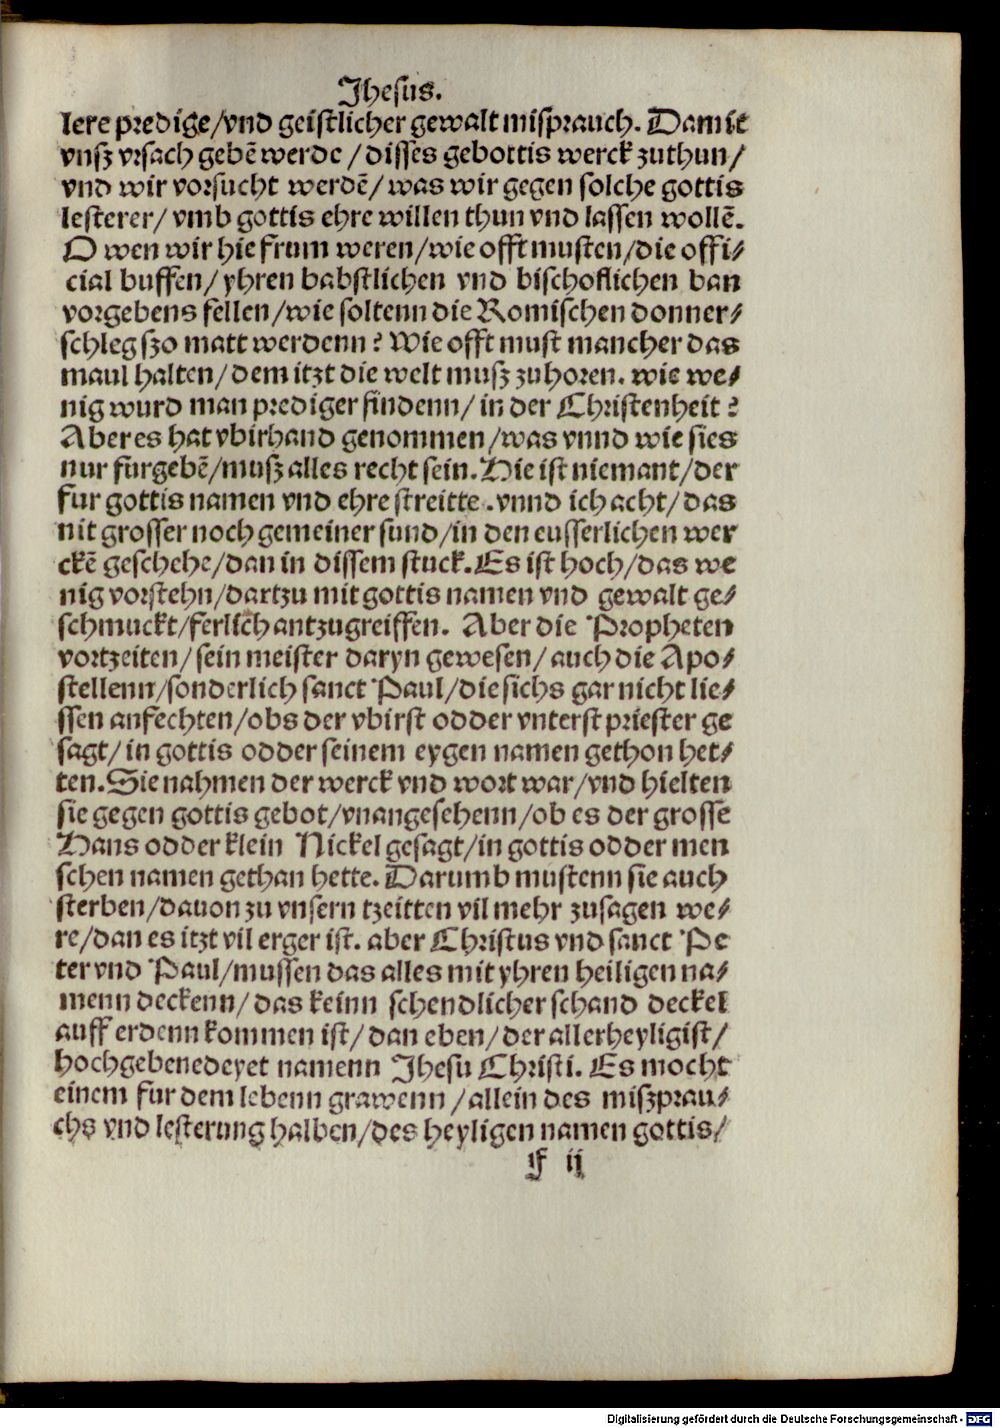 Jhesus.
lere predige/vnd geistlicher gewalt misprauch. Damit
vnsz vrsach gebē werde/disses gebottis werck zuthun/
vnd wir vorsucht werdē/was wir gegen solche gottis
lesterer/vmb gottis ehre willen thun vnd lassen wollē.
O wen wir hie frum weren/wie offt musten/die offi/
cial buffen/yhren babstlichen vnd bischoflichen ban
vorgebens fellen/wie soltenn die Romischen donner/
schleg szo matt werdenn? Wie offt must mancher das
maul halten/dem itzt die welt musz zuhoren. wie we/
nig wurd man prediger findenn/in der Christenheit?
Aber es hat vbirhand genommen/was vnnd wie sies
nur furgebē/musz alles recht sein. Hie ist niemant/der
fur gottis namen vnd ehre streitte. vnnd ich acht/das
nit grosser noch gemeiner sund/in den eusserlichen wer
ckē geschehe/dan in dissem stuck. Es ist hoch/das we
nig vorstehn/dartzu mit gottis namen vnd gewalt ge/
schmuckt/ferlich antzugreiffen. Aber die Propheten
vortzeiten/sein meister daryn gewesen/auch die Apo/
stellenn/sonderlich sanct Paul/die sichs gar nicht lie/
ssen anfechten/obs der vbirst odder vnterst priester ge
sagt/in gottis odder seinem eygen namen gethon het/
ten. Sie nahmen der werck vnd wort war/vnd hielten
sie gegen gottis gebot/vnangesehenn/ob es der grosse
Hans odder klein Nickel gesagt/in gottis odder men
schen namen gethan hette. Darumb mustenn sie auch
sterben/dauon zu vnsern tzeitten vil mehr zusagen we/
re/dan es itzt vil erger ist. aber Christus vnd sanct Pe
ter vnd Paul/mussen das alles mit yhren heiligen na/
menn deckenn/das keinn schendlicher schand deckel
auff erdenn kommen ist/dan eben/der allerheyligist/
hochgebenedeyet namenn Jhesu Christi. Es mocht
einem fur dem lebenn grawenn/allein des miszprau/
chs vnd lesterung halben/des heyligen namen gottis/
f ij
Digitalisierung gefördert durch die Deutsche Forschungsgemeinschaft - DFG